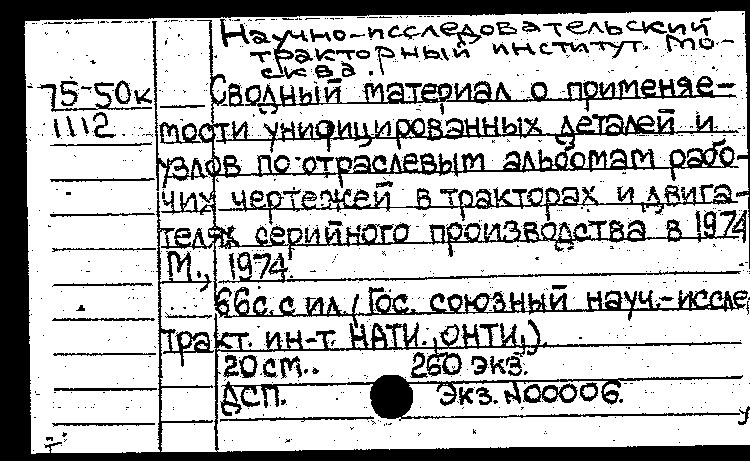 Научно-исследовательский
тракторный институт. Мо-
сква.
75-50к Сводный материал о применяе-
1112 мости унифицированных деталей и
узлов по отраслевым альбомам рабо-
чих чертежей в тракторах и двига-
телях серийного производства в 1974
М., 1974.
66с. с ил. (Гос. союзный науч.-иссле
тракт. ин-т. НАТИ., ОНТИ,).
20 см.. 260 экз.
ДСП. Экз. N00006.